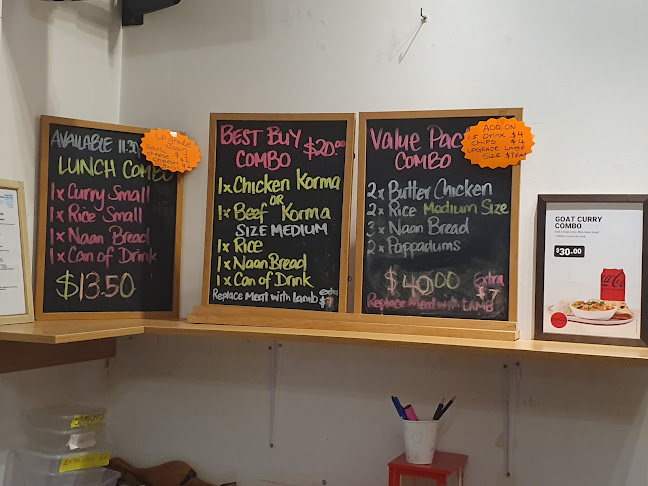 AVAILABLE 11.30
LUNCH COMBO
1x Curry Small
1x Rice Small
1x Naan Bread
1x Can of Drink
$13.50
Upgrade
Naan
BEST BUY $20.00
COMBO
1x Chicken Korma
OR
1x Beef Korma
SIZE MEDIUM
1x Rice
1x Naan Bread
1x Can of Drink
Replace Meat with lamb extra $7
Value Pac
COMBO
2x Butter Chicken
2x Rice Medium Size
3x Naan Bread
2x Pappadums
$40.00 Extra
$7
Replace Meat with LAMB
ADD ON
1.5 Drink $4
CHIPS $4
UPGRADE LARGE
SIZE $7
GOAT CURRY
COMBO
$30.00